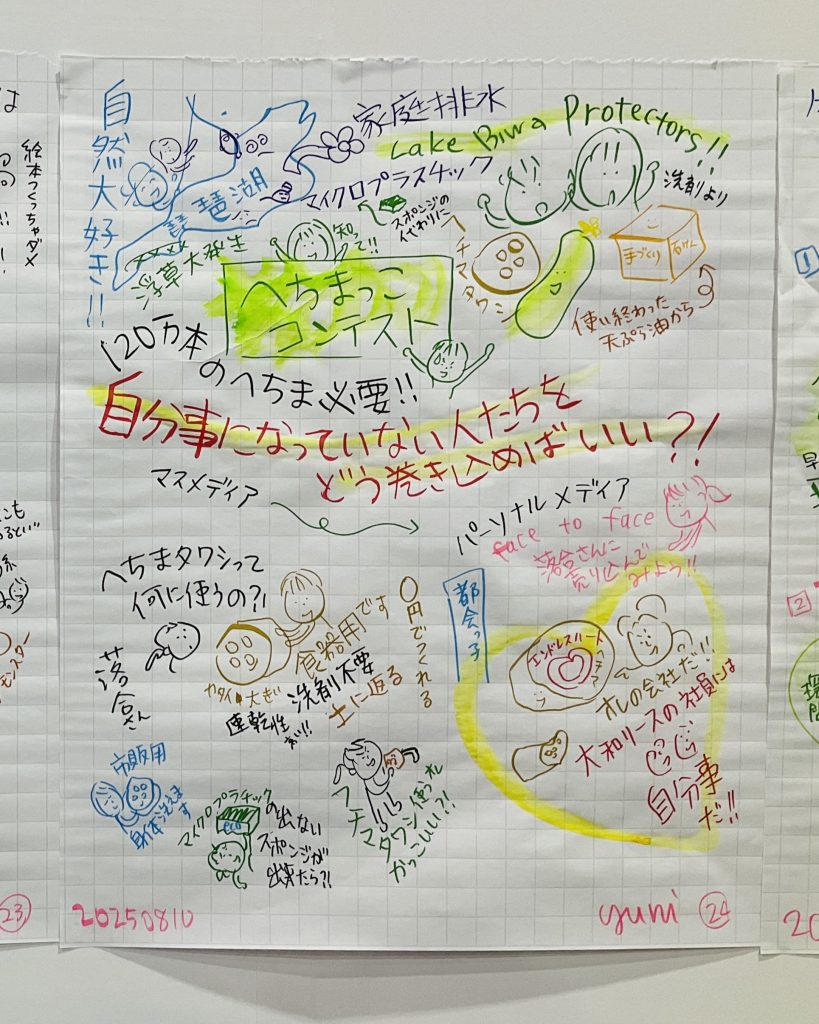 自然大好き!!
琵琶湖
家庭排水
マイクロプラスチック
Lake Biwa Protectors!!
洗剤より
浮草大発生
知って!!
スポンジの
代わりに
ヘチマタワシ
手づくり
石けん
使い終わった
天ぷら油から
へちまっこ
コンテスト
120万本
のへちま必要!!
自分事になっていない人たちを
どう巻き込めばいい?!
マスメディア
パーソナルメディア
face to face
落合さんに
売り込んで
みよう!!
へちまタワシって
何に使うの?!
落合さん
食器用です
カタイ 大きい
洗剤不要
速乾性
土に返る
〇円でつくれる
都会っ子
エンドレスハート
ヘチマ
オレの会社だ!!
大和リースの社員には
自分事
だ!!
市販用
身体洗えます
マイクロプラチックの出ない
eco
スポンジが
出来たら?!
ヘチマタワシ使うオレ
かっこいい?!
20250810
yumi
24
絵本つくっちゃダメ
モンスター
23
1
2